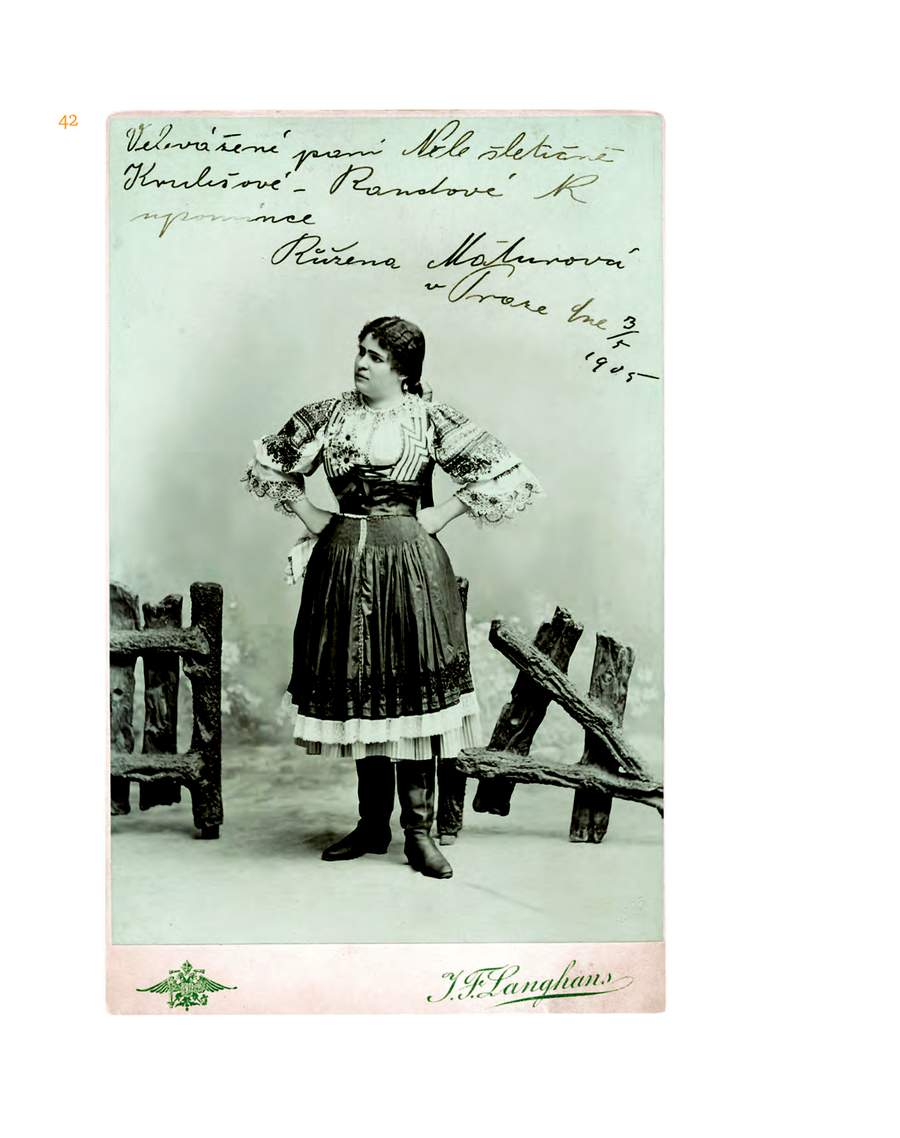 42
Velevážené paní Nele šletičně
Krulišové - Randové K
upomínce
Růžena Maturová
v Praze dne 3/5
1905
J.F. Langhans